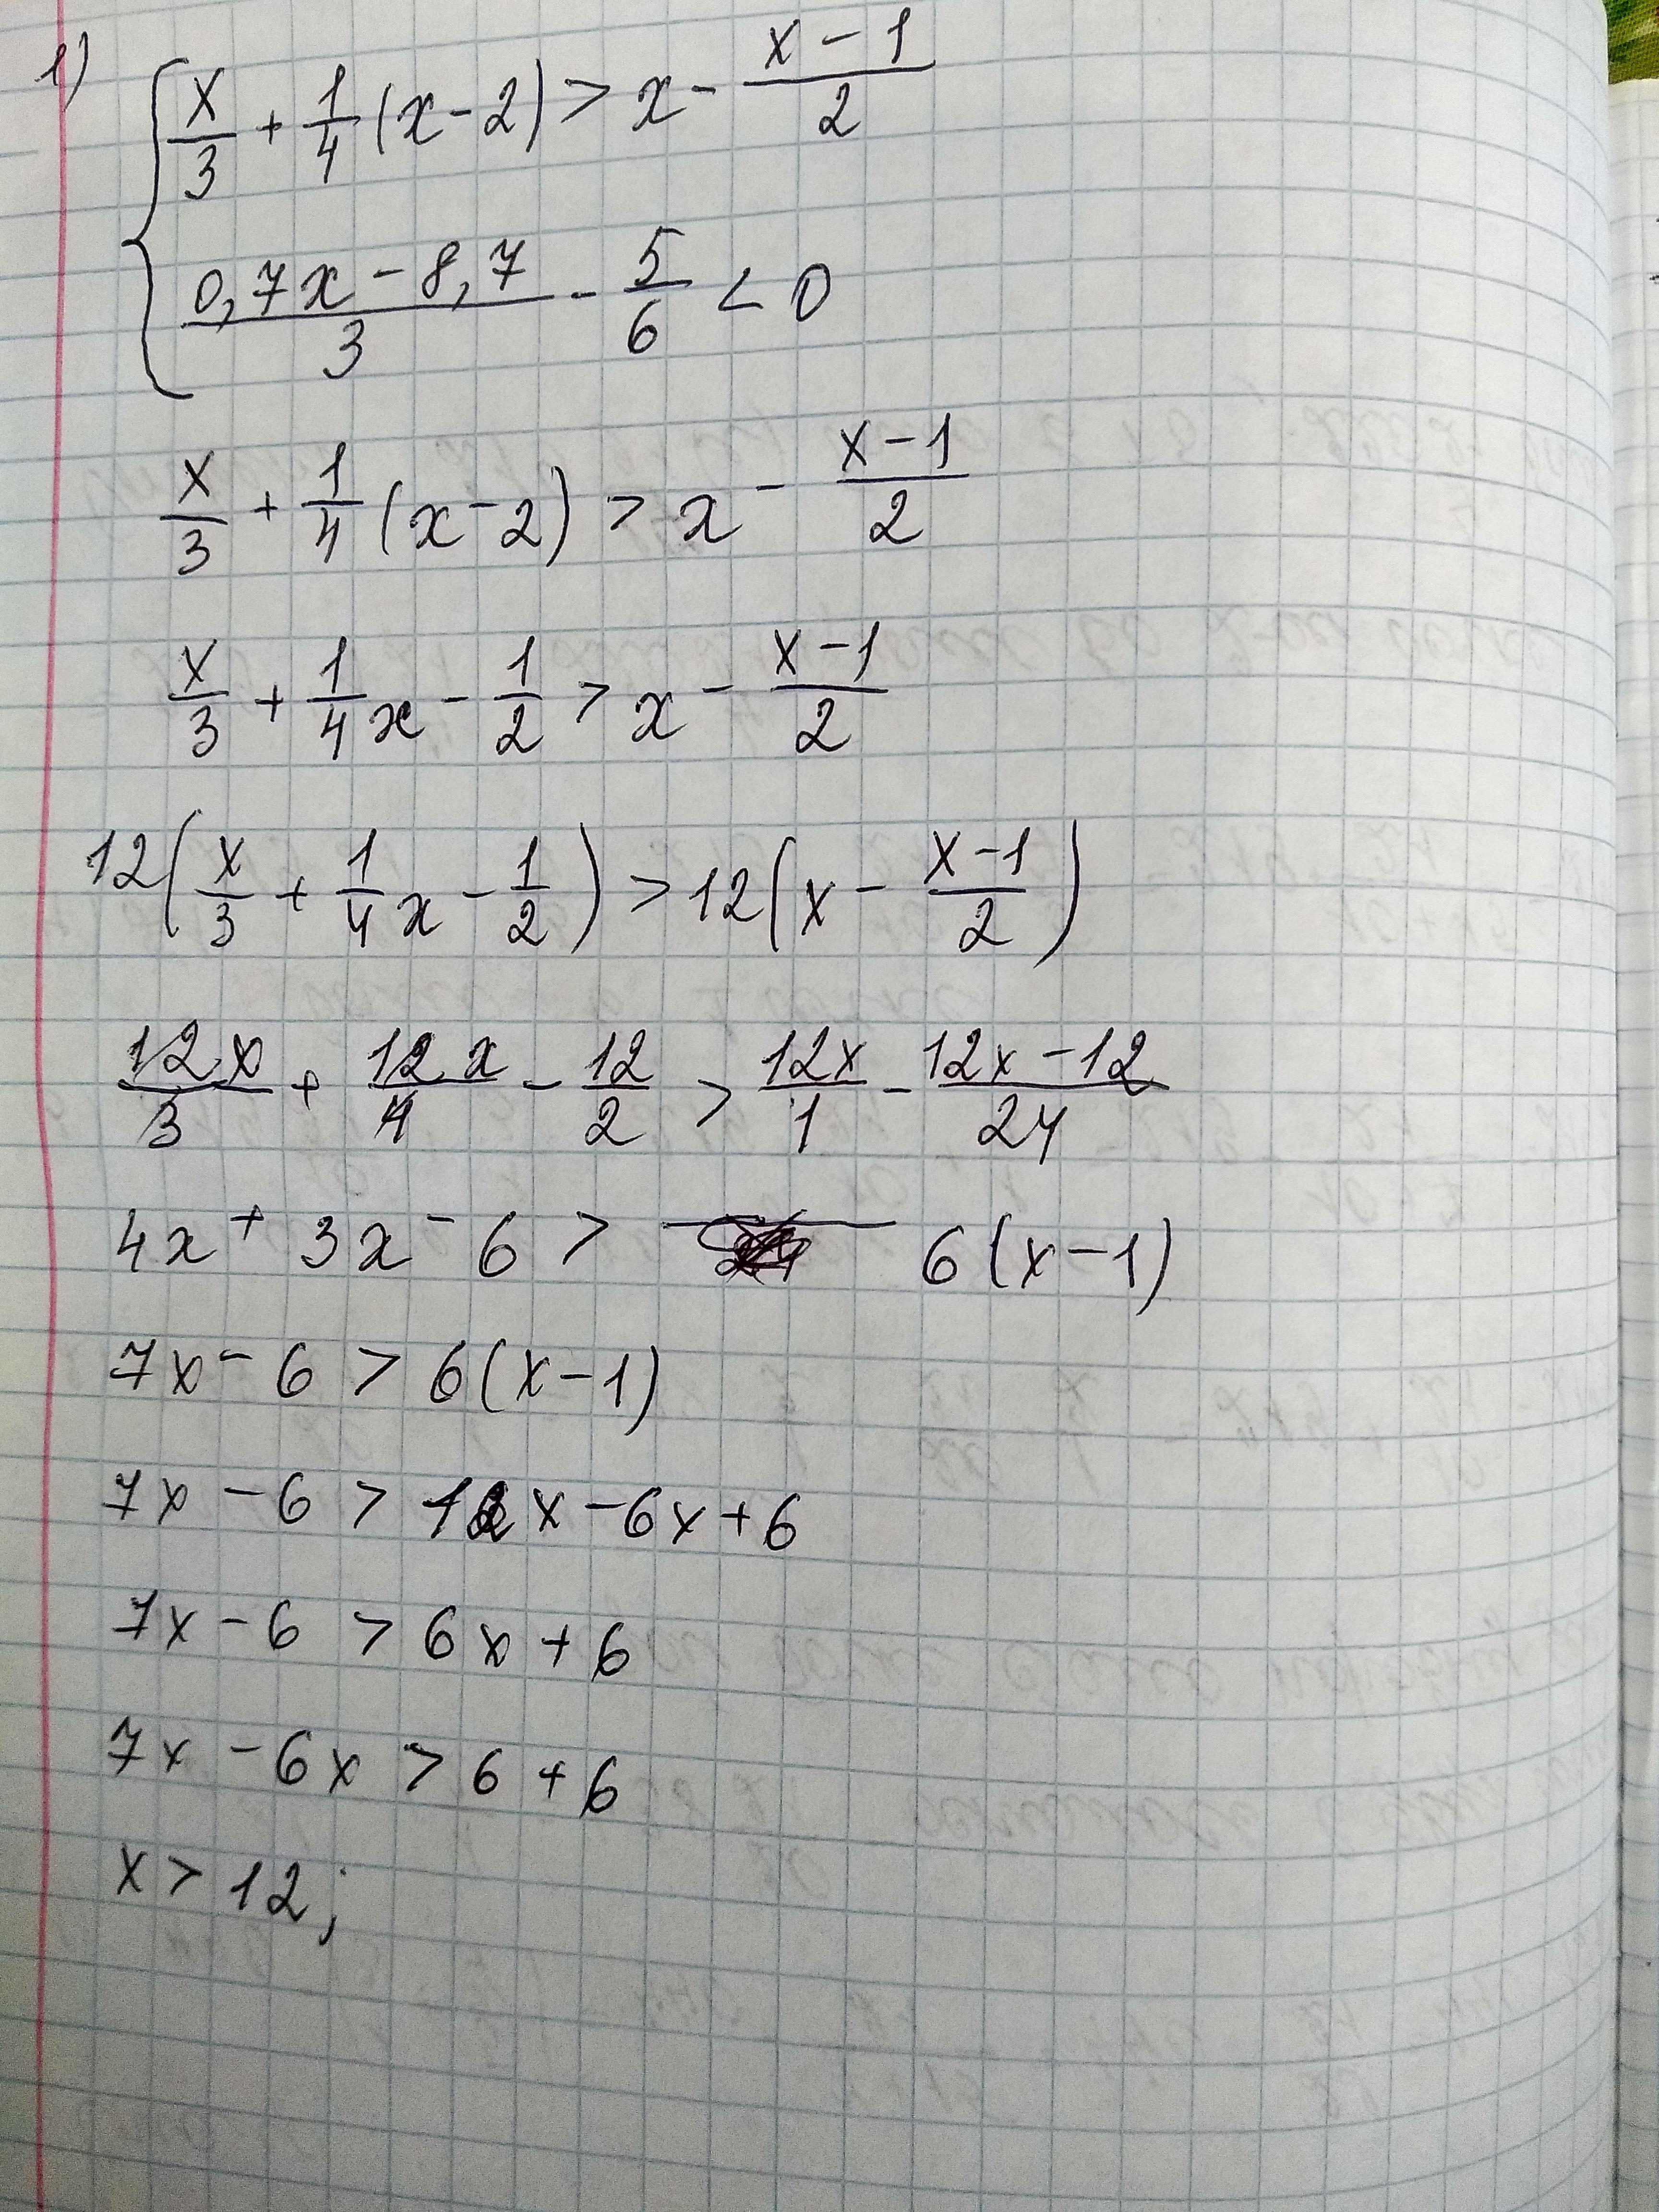 1)
x/3 + 1/4 (x - 2) > x - (x - 1)/2
(0,7x - 8,7)/3 - 5/6 < 0
x/3 + 1/4 (x - 2) > x - (x - 1)/2
x/3 + 1/4 x - 1/2 > x - (x - 1)/2
12(x/3 + 1/4 x - 1/2) > 12(x - (x - 1)/2)
12x/3 + 12x/4 - 12/2 > 12x/1 - (12x - 12)/24
4x + 3x - 6 > 6(x - 1)
7x - 6 > 6(x - 1)
7x - 6 > 12x - 6x + 6
7x - 6 > 6x + 6
7x - 6x > 6 + 6
x > 12;